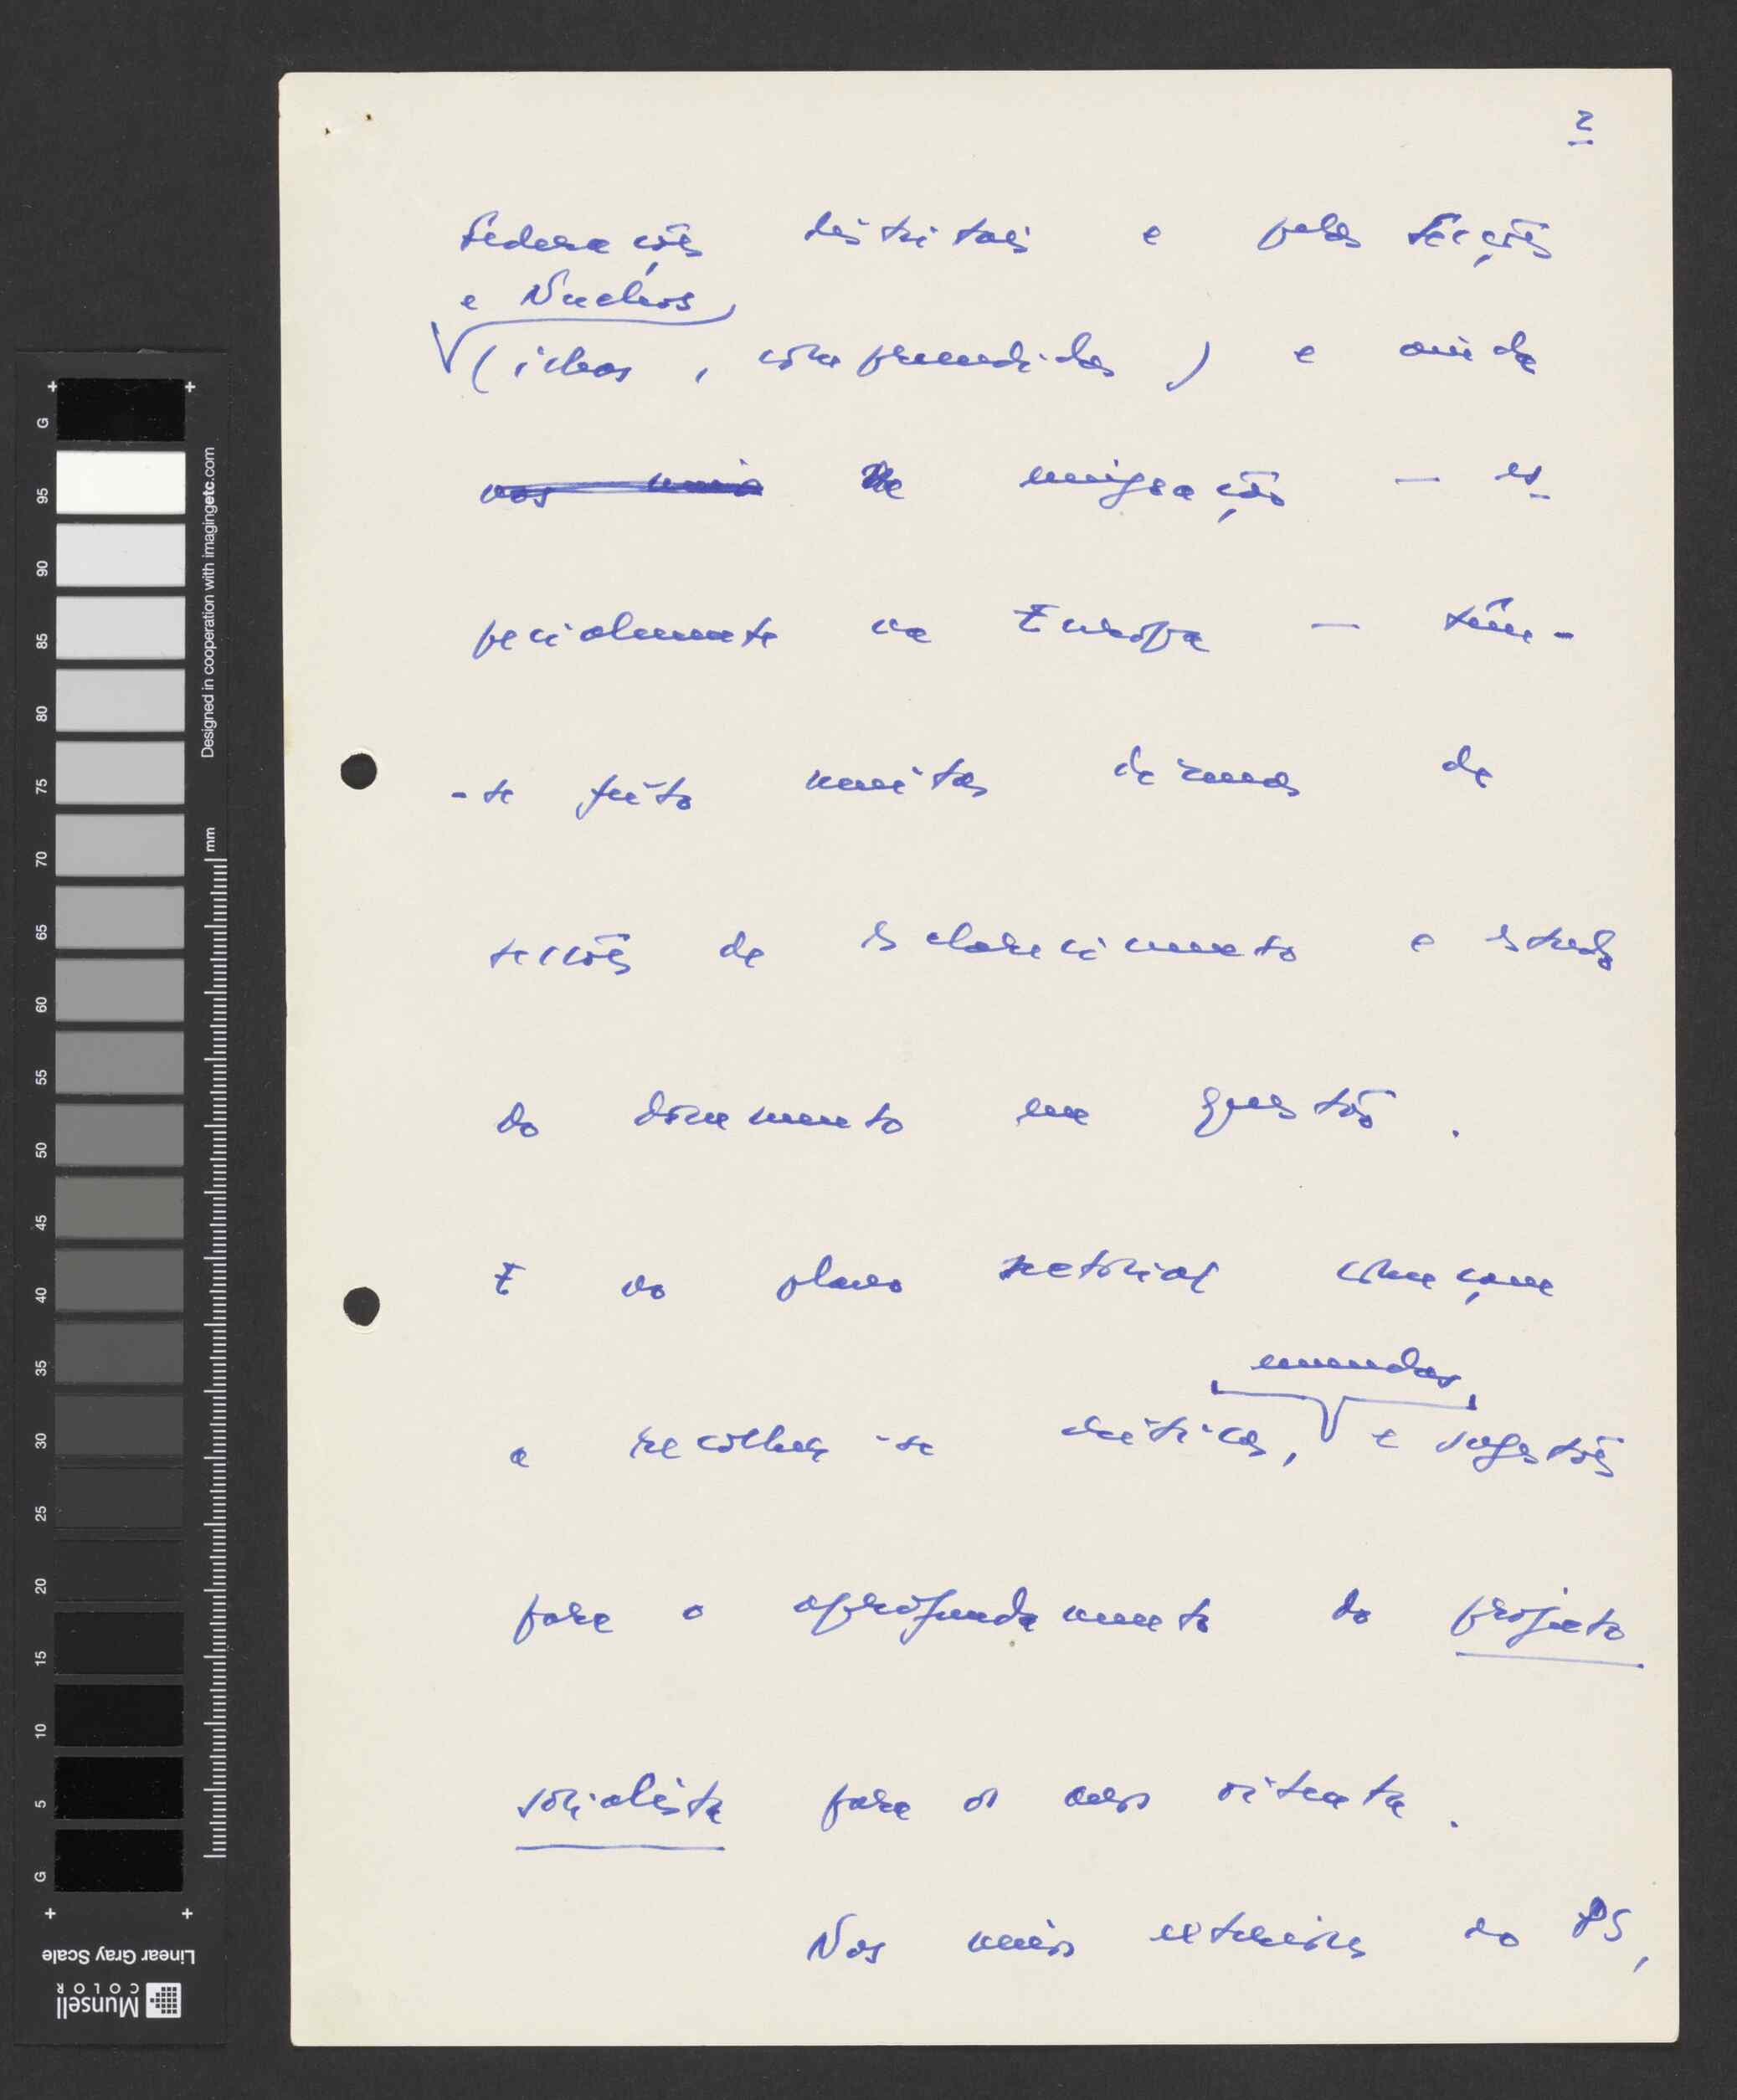 2
federações distritais e pelas Secções
e Nucleos
(ilhas, compreendidas) e ainda
nos meios na emigração — es-
pecialmente na Europa — têm-
-se feito muitas dezenas de
sessões de esclarecimento e estudo
do documento em questão.
E no plano sectorial começam
emendas
a recolher-se críticas, e sugestões
para o aprofundamento do projecto
socialista para os anos oitenta.
Nos meios exteriores ao PS,
G
95
90
85
80
75
70
65
60
55
50
45
40
35
30
25
20
15
10
5
G
mm
Designed in cooperation with imagingetc.com
Linear Gray Scale
Munsell
COLOR